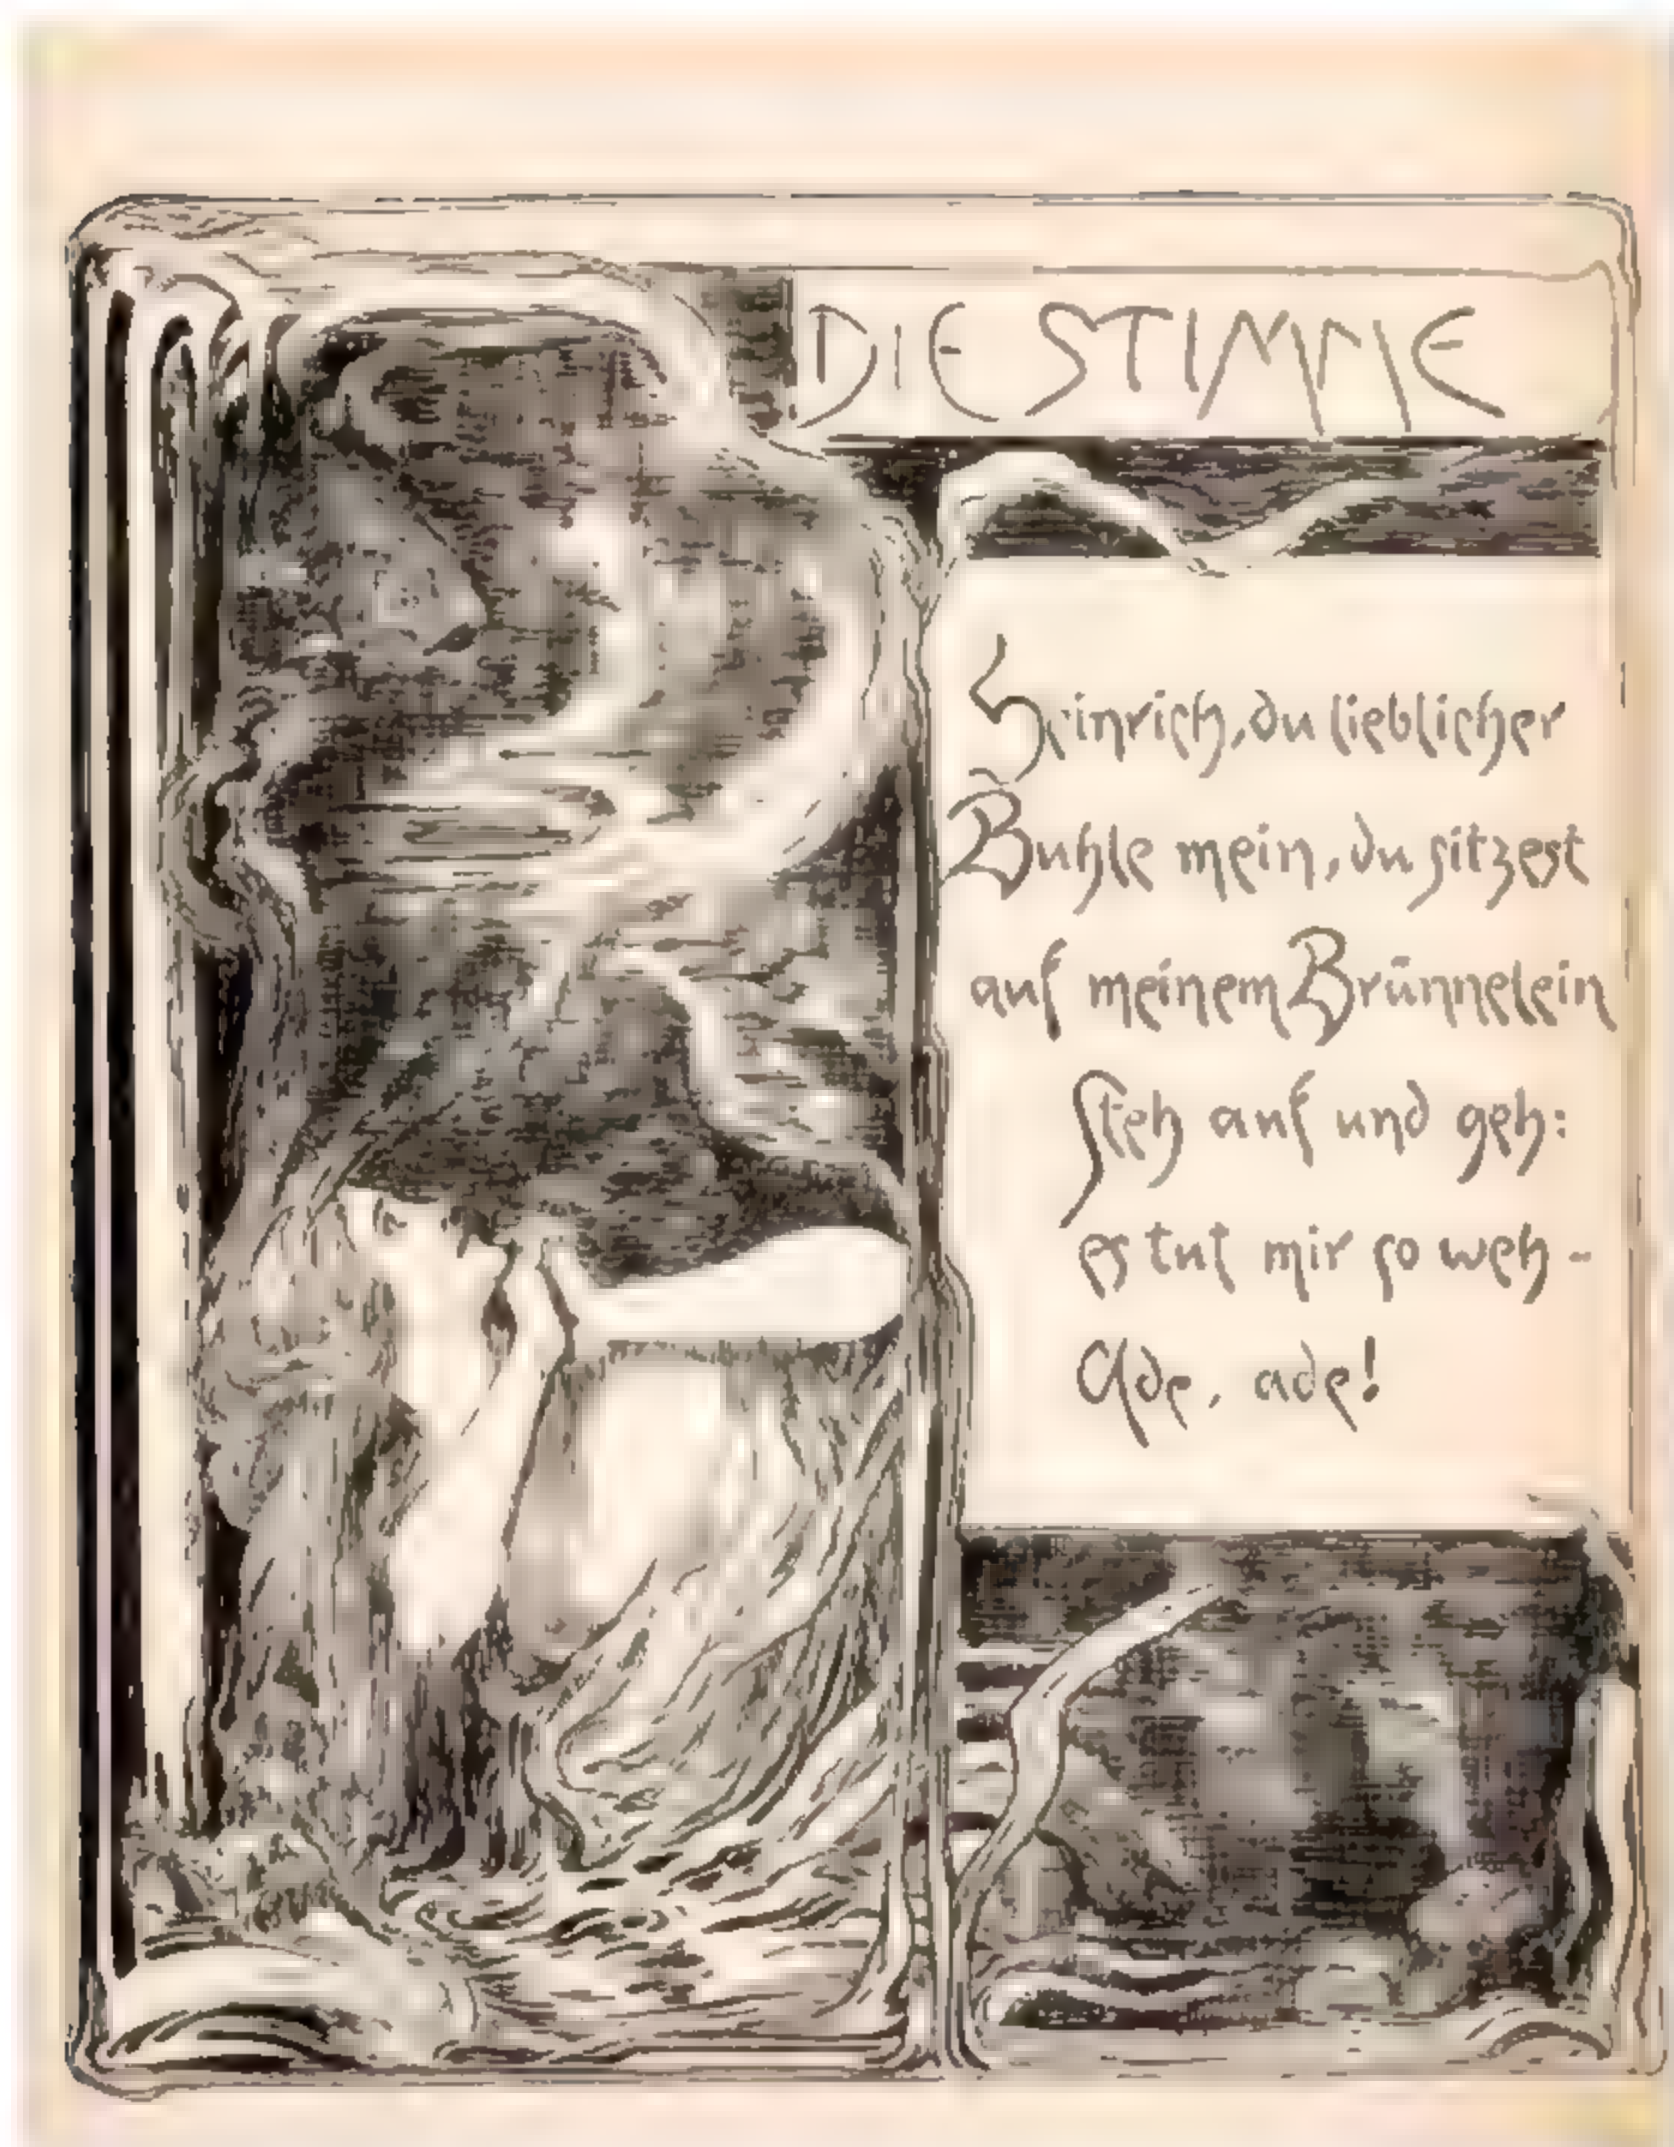 DIE STIMME
Heinrich, du lieblicher
Buhle mein, du sitzest
auf meinem Brünnelein
Steh auf und geh:
es tut mir so weh -
Ade, ade!